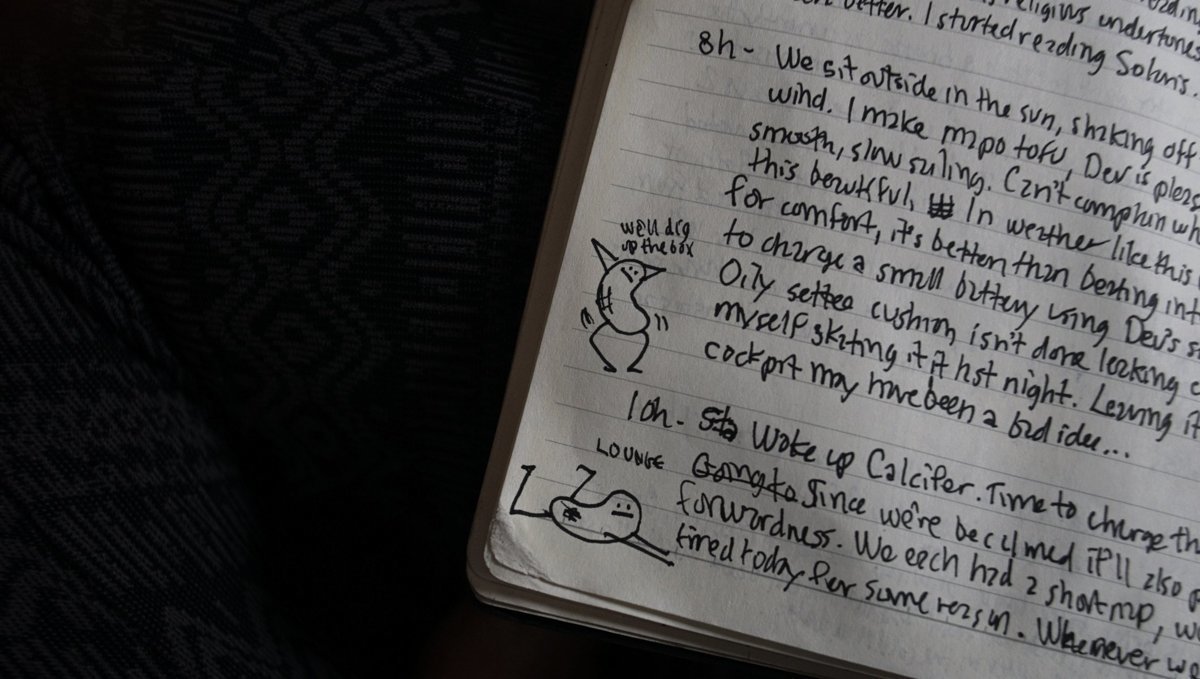 religious undertones
better. I started reading Solaris.
8h - We sit outside in the sun, shaking off
wind. I make mapo tofu, Dev is pleas
smooth, slow sailing. Can't complain wh
this beautiful. In weather like this
for comfort, it's better than beating int
to charge a small battery using Dev's s
Oily settee cushion isn't done leaking
myself skating it last night. Leaving it
cockpit may have been a bad idea...
we'll dig
up the box
10h - Woke up Calcifer. Time to charge th
LOUNGE
Going to Since we're becalmed it'll also
forwardness. We each had a short nap, w
tired today for some reason. Whenever w